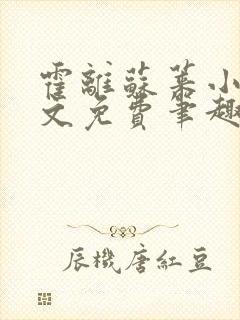 霍離蘇菤小
文免費筆趣
辰機唐紅豆